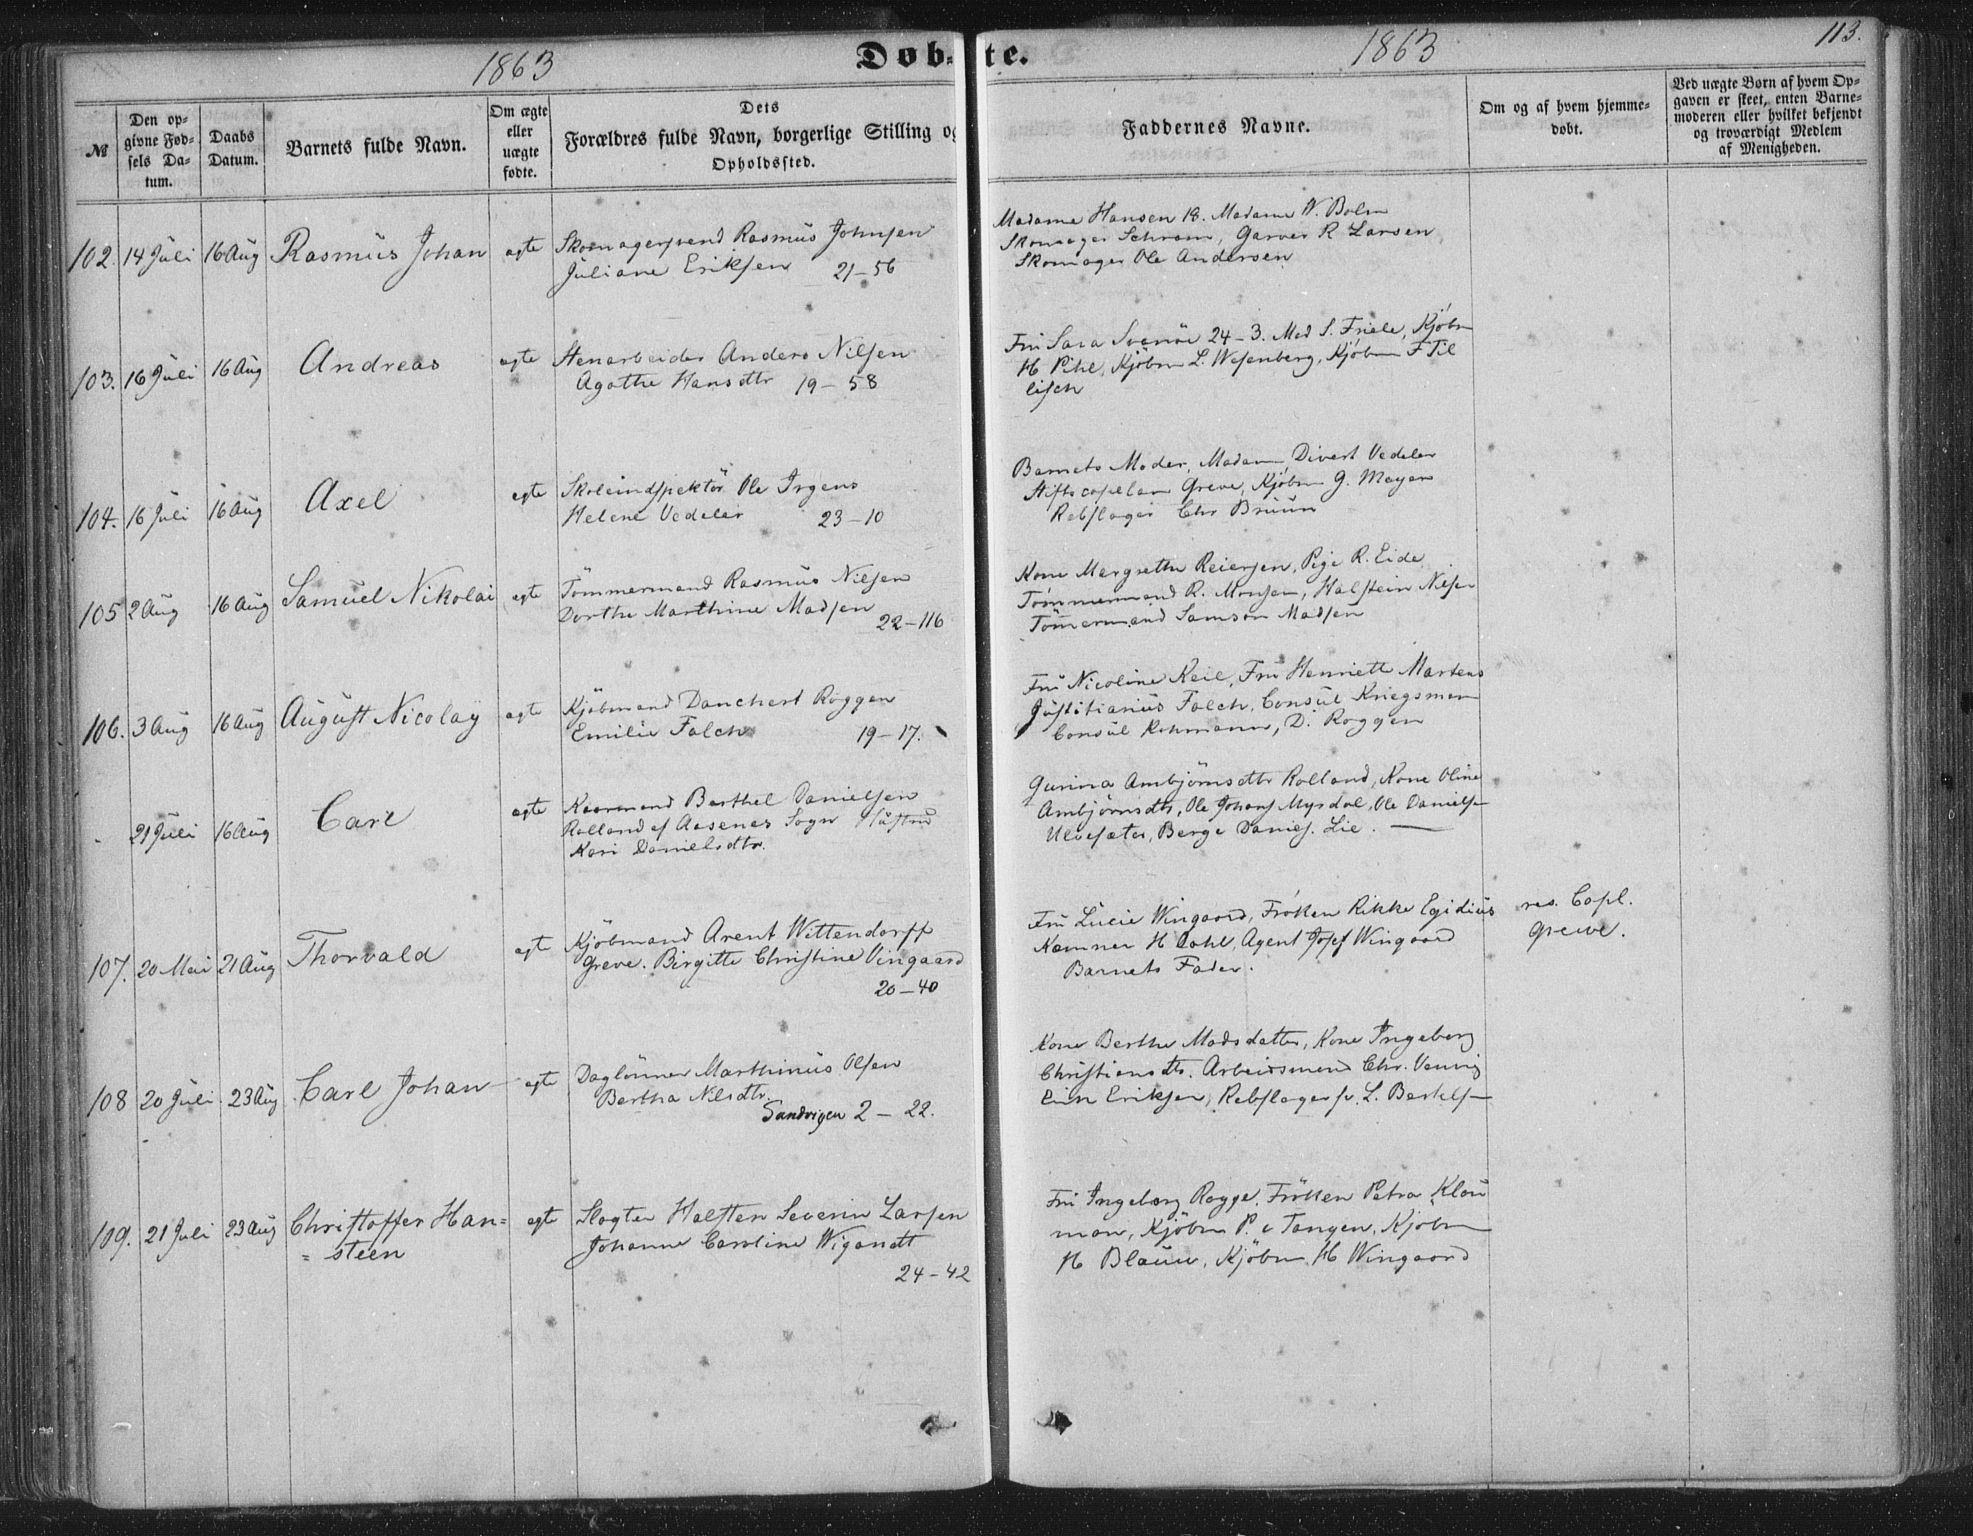 1863
Døb-te.
1863
113.
№
Den op-
givne Fød-
sels Da-
tum.
Daabs
Datum.
Barnets fulde Navn.
Om ægte
eller
uægte
fødte.
Dets
Forældres fulde Navn, borgerlige Stilling og
Opholdssted.
Faddernes Navne.
Om og af hvem hjemme-
døbt.
Ved uægte Børn af hvem Op-
gaven er skeet, enten Barne-
moderen eller hvilket bekjendt
og troværdigt Medlem
af Menigheden.
102. 14 Juli 16 Aug Rasmus Johan ægte
Skomagersvend Rasmus Johnsen
Juliane Eriksen 21-56
Madame Hansen 18. Madame W. Bolm
Skomager Schram, Garver R Larsen
Skomager Ole Andersen
103. 16 Juli 16 Aug Andreas ægte
Stenarbeider Anders Nilsen
Agathe Hansdtr 19-58
Fru Sara Svanöe 24-3. Mad S. Friele, Kjöbm
H Pihl, Kjöbm L. Wesenberg, Kjöbm F Til
lisch
104. 16 Juli 16 Aug Axel ægte
Skoleindspektör Ole Irgens
Helene Vedeler 23-10
Barnets Moder, Madam Divert Vedeler
Stiftscapelan Greve, Kjöbm G. Meyer
Rebslager Chr Bruun
105 2 Aug 16 Aug Samuel Nikolai ægte
Tömmermand Rasmus Nilsen
Dorthe Marthine Madsen
22-116
Kone Margrethe Reiersen, Pige R. Eide
Tömmermand R. Monsen, Halstein Nilsen
Tömermand Samson Madsen
106. 3 Aug 16 Aug August Nicolay ægte
Kjöbmand Danchert Roggen
Emilie Falch 19-17.
Fru Nicoline Keil, Fru Henriette Martens
Justitiarius Falch, Consul Kriegsman
Consul Rohmann, D. Roggen
21 Juli 16 Aug Carl ægte
Kaarmand Barthel Danielsen
Rolland af Aasenes Sogn Hustru
Kari Danielsdtr.
Gurina Ambjörnsdtr Rolland, Kone Oline
Ambjörnsdtr, Ole Johans Mysdal, Ole Daniels
Ulvesæter, Berge Daniels. Lie.
107. 20 Mai 21 Aug Thorvald ægte
Kjöbmand Arent Wittendorff
Greve. Birgitte Christine Vingaard
20-40
Fru Lucie Wingaard, Fröken Rikke Egidius
Kæmner H Dahl, Agent Josef Wingaard
Barnets Fader.
res. Capl.
Greve.
108 20 Juli 23 Aug Carl Johan ægte
Daglönner Marthinus Olsen
Bertha Nilsdtr.
Sandvigen 2-22.
Kone Berthe Madsdatter, Kone Ingeborg
Christiansdtr. Arbeidsmand Chr. Vennig
Erik Eriksen, Rebslagersv. L. Bertels
109. 21 Juli 23 Aug Christoffer Han=
=steen ægte
Slagter Halsten Severin Larsen
Johanne Caroline Wigandt
24-42
Fru Ingeborg Rogge, Fröken Petra Klou
man, Kjöbm P. v Tangen, Kjöbm
H Blauw, Kjöbm. H Wingaard